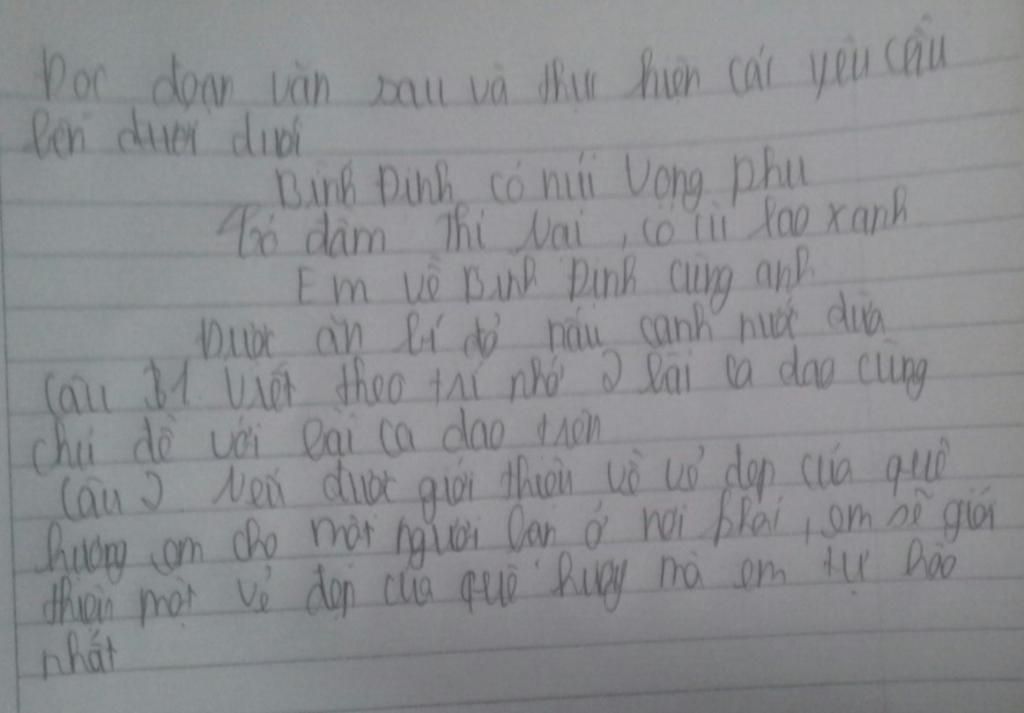 Đọc đoạn văn sau và thực hiện các yêu cầu
bên dưới dưới
Bình Định có núi Vọng phu
Có đầm Thị Nại, có cù lao xanh
Em về Bình Định cùng anh
Được ăn bí đỏ nấu canh nước dừa
Câu 1 Viết theo trí nhớ 2 bài ca dao cùng
chủ đề với bài ca dao trên
Câu 2 Nếu được giới thiệu về vẻ đẹp của quê
hương em cho một người bạn ở nơi khác, em sẽ giới
thiệu một vẻ đẹp của quê hương mà em tự hào
nhất